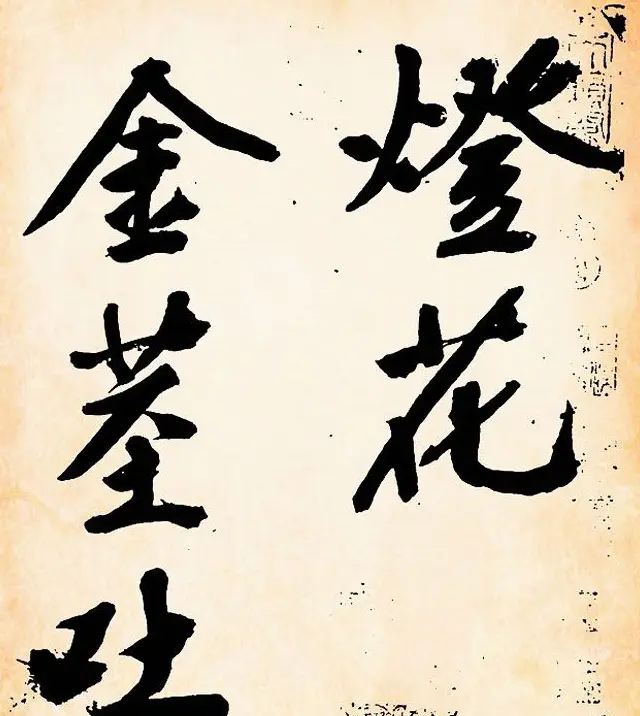 燈花
金茎吐